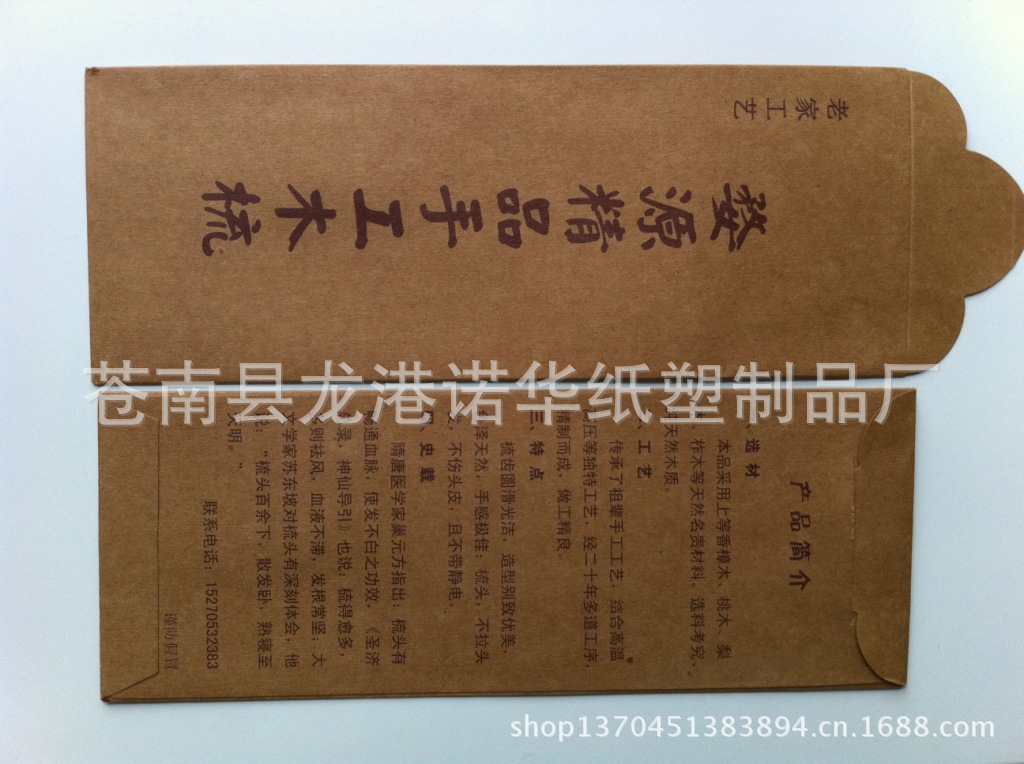 老家工艺
婺源精品手工木梳
苍南县龙港诺华纸塑制品厂
产品简介
、选材
本品采用上等香樟木、桃木、梨
木、柞木等天然名贵材料。选料考究、
天然木质。
、工艺
传承了祖辈手工工艺，结合高温
高压等独特工艺，经二十年多道工序，
精制而成，做工精良。
三、特点
梳齿圆滑光洁，造型别致优美，
色泽天然，手感极佳；梳头，不拉头
发，不伤头皮，且不带静电。
四、史载
隋唐医学家巢元方指出：梳头有
畅通血脉，使发不白之功效，《圣济
总录，神仙导引》也说：梳得愈多，
则祛风，血液不滞，发根常坚；大
文学家苏东坡对梳头有深刻体会，他
说：“梳头百余下，散发卧，熟寝至
天明。”
联系电话：15270532383
谨防假冒
shop1370451383894.cn.1688.com